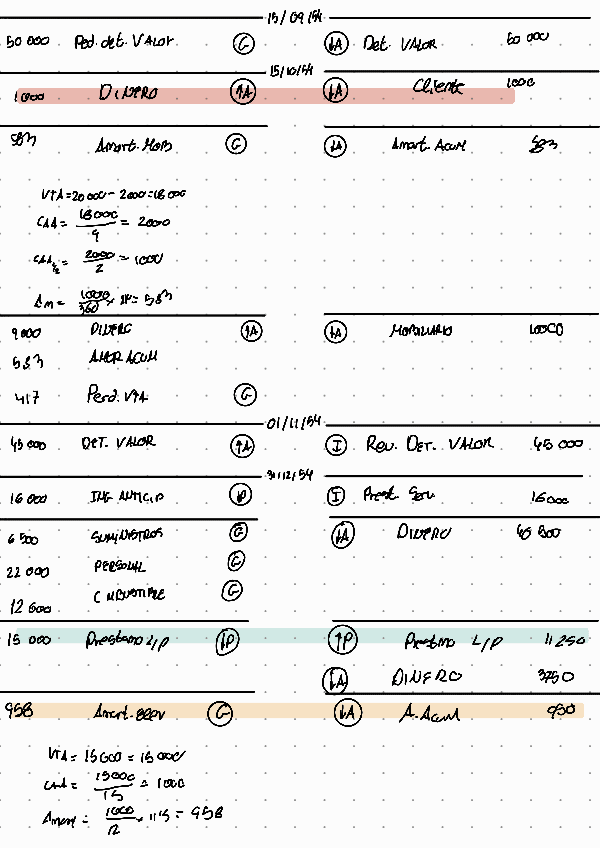 15/09/54
50 000 Ped. det. VALOR G ↓A Det. VALOR 50 000
15/10/54
1000 DINERO ↑A ↓A Cliente 1000
583 Amort. Mob G ↓A Amort. Acum 583
VTA = 20 000 - 2000 = 18 000
CAA = 18000/9 = 2000
CAA 1/2 = 2000/2 = 1000
Am = 1000/360 × = 583
9000 DINERO ↑A ↓A MOBILIARIO 10000
583 AMOR ACUM
417 Perd. VTA G
01/11/54
45 000 DET. VALOR ↑A I Rev. DET. VALOR 45 000
31/12/54
16 000 ING ANTICIP ↓P I Prest. Serv 16000
6 500 SUMINISTROS G ↓A DINERO
22 000 PERSONAL G
12 000 COMBUSTIBLE G
15 000 Prestamo L/P ↓P ↑P Prestmo L/P 11 250
↓A DINERO 3750
958 Amort. G ↓A A. Acum
VTA = 15000 = 15 000
CAA = 15000/15 = 1000
Amort = 1000/12 · 11'5 = 958